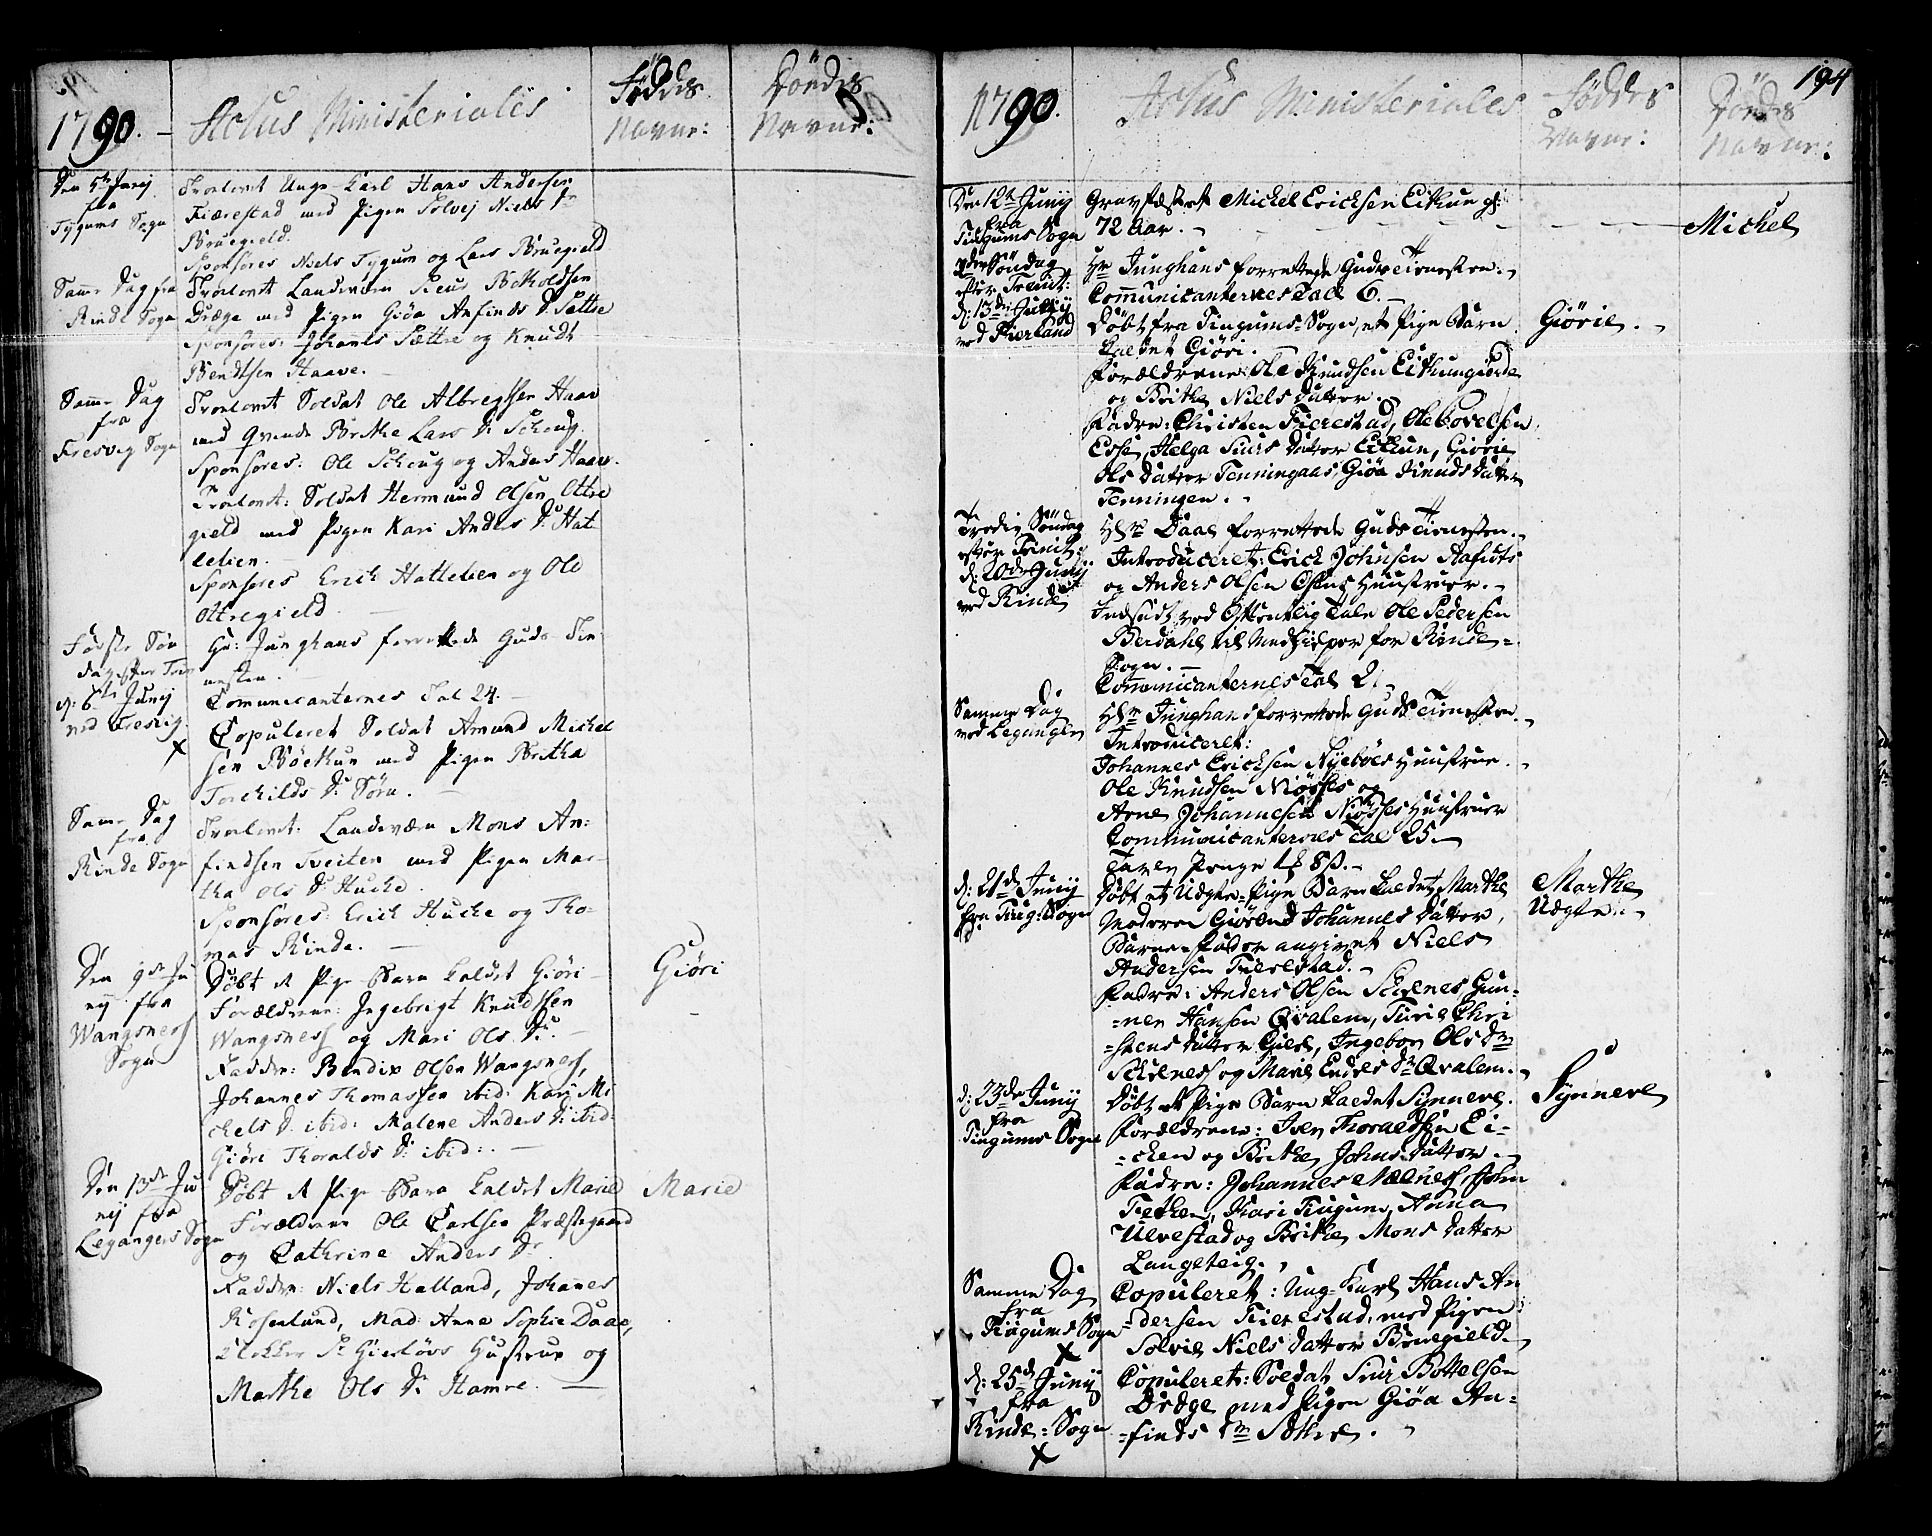 1790.
Actus Ministeriales
Fødde
Navne:
Dödes
Navne:
Den 5te Junij
fra
Tygums Sogn
Trolovet Unge Karl Hans Andersen
Fierestad med Pigen Solvej Niels Dr
Bruegield.
Sponsores Niels Tygum og Lars Bruegield
Samme Dag fra
Rinde Sogn
Trolovet Landeværn Siur Botholdsen
Dræge med Pigen Giöa Anfinds Dr Sættre
Sponsores: Johannes Sættre og Knudt
Bendtsen Haave.
Samme Dag
fra
Fresvig Sogn
Trolovet Soldat Ole Albregtsen Haav
med Qvinde Brithe Lars Dr Scheug.
Sponsores: Ole Scheug og Anders Haav.
Trolovet: Soldat Hermund Olsen Ottre
gield med Pigen Kari Anders Dr Hat
lelien.
Sponsores Erich Hatlelien og Ole
Ottregield.
Første Søn
dag efter Trin
d: 6te Junij
ved Fresvig.
X
Hr: Junghans forrettede Guds Tie
nesten.
Communicanternes Tal 24.
Copuleret Soldat Amund Michel
sen Böethun med Pigen Britha
Torchilds Dr Söra.
Samme Dag
fra
Rinde Sogn
Trolovet: Landeværn Mons An-
findsen Tveiten med Pigen Mar-
tha Ols Dr Hucke.
Sponsores: Erich Hucke og Tho-
mas Rinde.
Den 9de Ju
nij fra
Wangsness
Sogn
Döbt et Pige Barn kaldet Giöri
Forældrene: Ingebrigt Knudsen
Wangsness og Mari Ols Dr.
Faddere: Bendix Olsen Wangsness,
Johannes Thomassen ibid: Kari Mi
chels Dr ibid: Malene Anders Dr ibid:
Giöri Thoralds Dr ibid:
Giöri
Den 13de Ju
nij fra
Legangers Sogn
Döbt et Pige Barn kaldet Marie
Forældrene Ole Carlsen Præstegaard
og Cathrine Anders Dr
Faddere: Niels Halland, Johannes
Rosenlund, Mad: Anne Sophie Daae,
Klokker Sr Gierlövs Hustrue og
Marthe Ols Dr Hamre.
Marie
194
1790.
Actus Ministeriales
Föddes
Navne:
Dödes
Navne:
Den 12te Junij
fra
Tiugums Sogn
Gravfæstet Michel Ericksen Eithun gl:
72 Aar.
Michel
2den Söndag
efter Trinit:
d: 13de Junij
ved Fierland
Hr Junghans forrettede Guds Tienesten.
Communicanternes Tall 6.
Döbt fra Tiugums-Sogn, et Pige Barn
kaldet Giöri.
Forældrene: Ole Knudsen Eithungierde
og Brithe Niels Datter.
Fadre: Christen Fierestad, Ole Povelsen
Esse, Helga Siurs Datter Eithun, Giörie
Ols Datter Tenningaas, Giöa Knuds Datter
Tenningen.
Giörie.
Tredie Söndag
efter Trinit:
d: 20de Junij
ved Rinde
Hr Daae forrettede Guds Tienesten.
Introduceret: Erick Johnsen
og Anders Olsen Huustruer.
Indsadt ved Offentlig Tale Ole Pedersen
Berdahl til Medhielper for Rinde-
Sogn.
Communicanternes Tal 2.
Samme Dag
ved Leganger
Hr Junghans forrettede Guds Tienesten.
Introduceret:
Johannes Ericksen Nyebøes Huustrue.
Ole Knudsen Niösses og
Arne Johannesen Niösses Huustruer
Communicanternes Tal 25.
Tavle Penge
d: 21de Junij
fra Tiug: Sogn
Döbt et Uægte-Pige Barn kaldet Marthe
Moderen Giörend Johannes Datter,
Barne-Fader angivet Niels
Andersen Fierestad.
Fadre: Anders Olsen Schenes Gun-
-ner Hansen Qvalem, Turie Chri
-stens Datter Giel, Ingebor Ols Dr
Schenes og Marie Endres Dr Qvalem.
Marthe
Uægte.
d: 23de Junij
fra
Tiugums Sogn
Döbt et Pige Barn kaldet Synneve.
Forældrene: Iver Thoraldsen Ei-
-chen og Brithe Johns Datter.
Fadre: Johannes Melnes, John
Kari Tiugum, Anna
Ulvestad og Brithe Mons Datter
Langeteig.
Synneve
Samme Dag
fra
Tiugums Sogn
X
Copuleret: Ung-Karl Hans An
-dersen Fierestad, med Pigen
Solvie Niels Datter Bruegield.
d: 25de Junij
fra
Rinde-Sogn
X
Copuleret: Soldat Siur Bottelsen
Dræge med Pigen Giöa An-
-finds Dr Sættre.